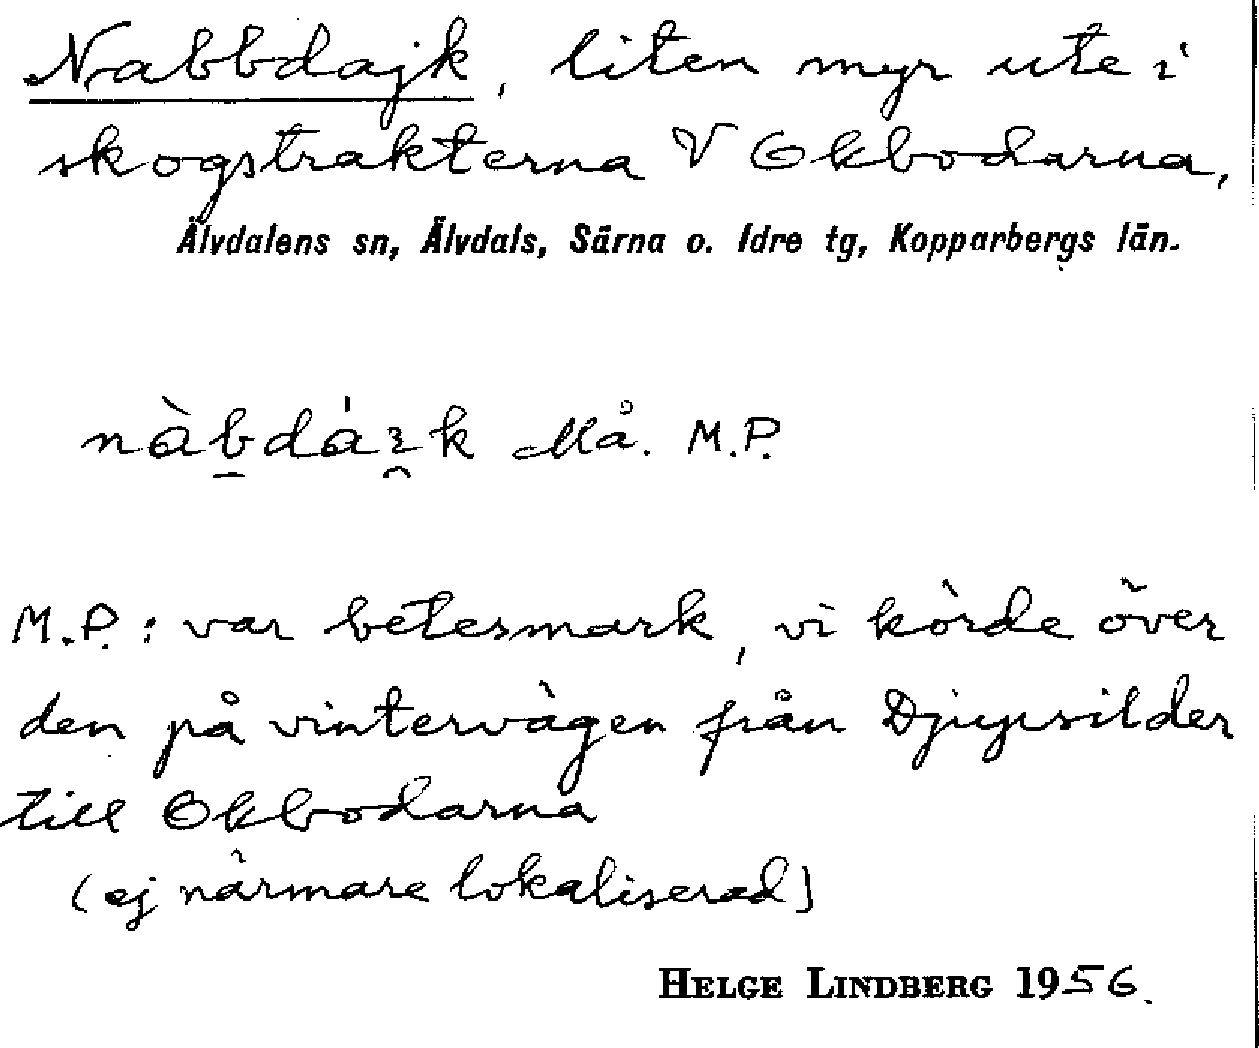 Nabbdajk, liten myr ute i
skogstrakterna V Okbodarna,
Älvdalens sn, Älvdals, Särna o. Idre tg, Kopparbergs län.
Må. M.P.
M.P.: var betesmark, vi körde över
den på vintervägen från Djupsilder
till Okbodarna
(ej närmare lokaliserad)
HELGE LINDBERG 1956.